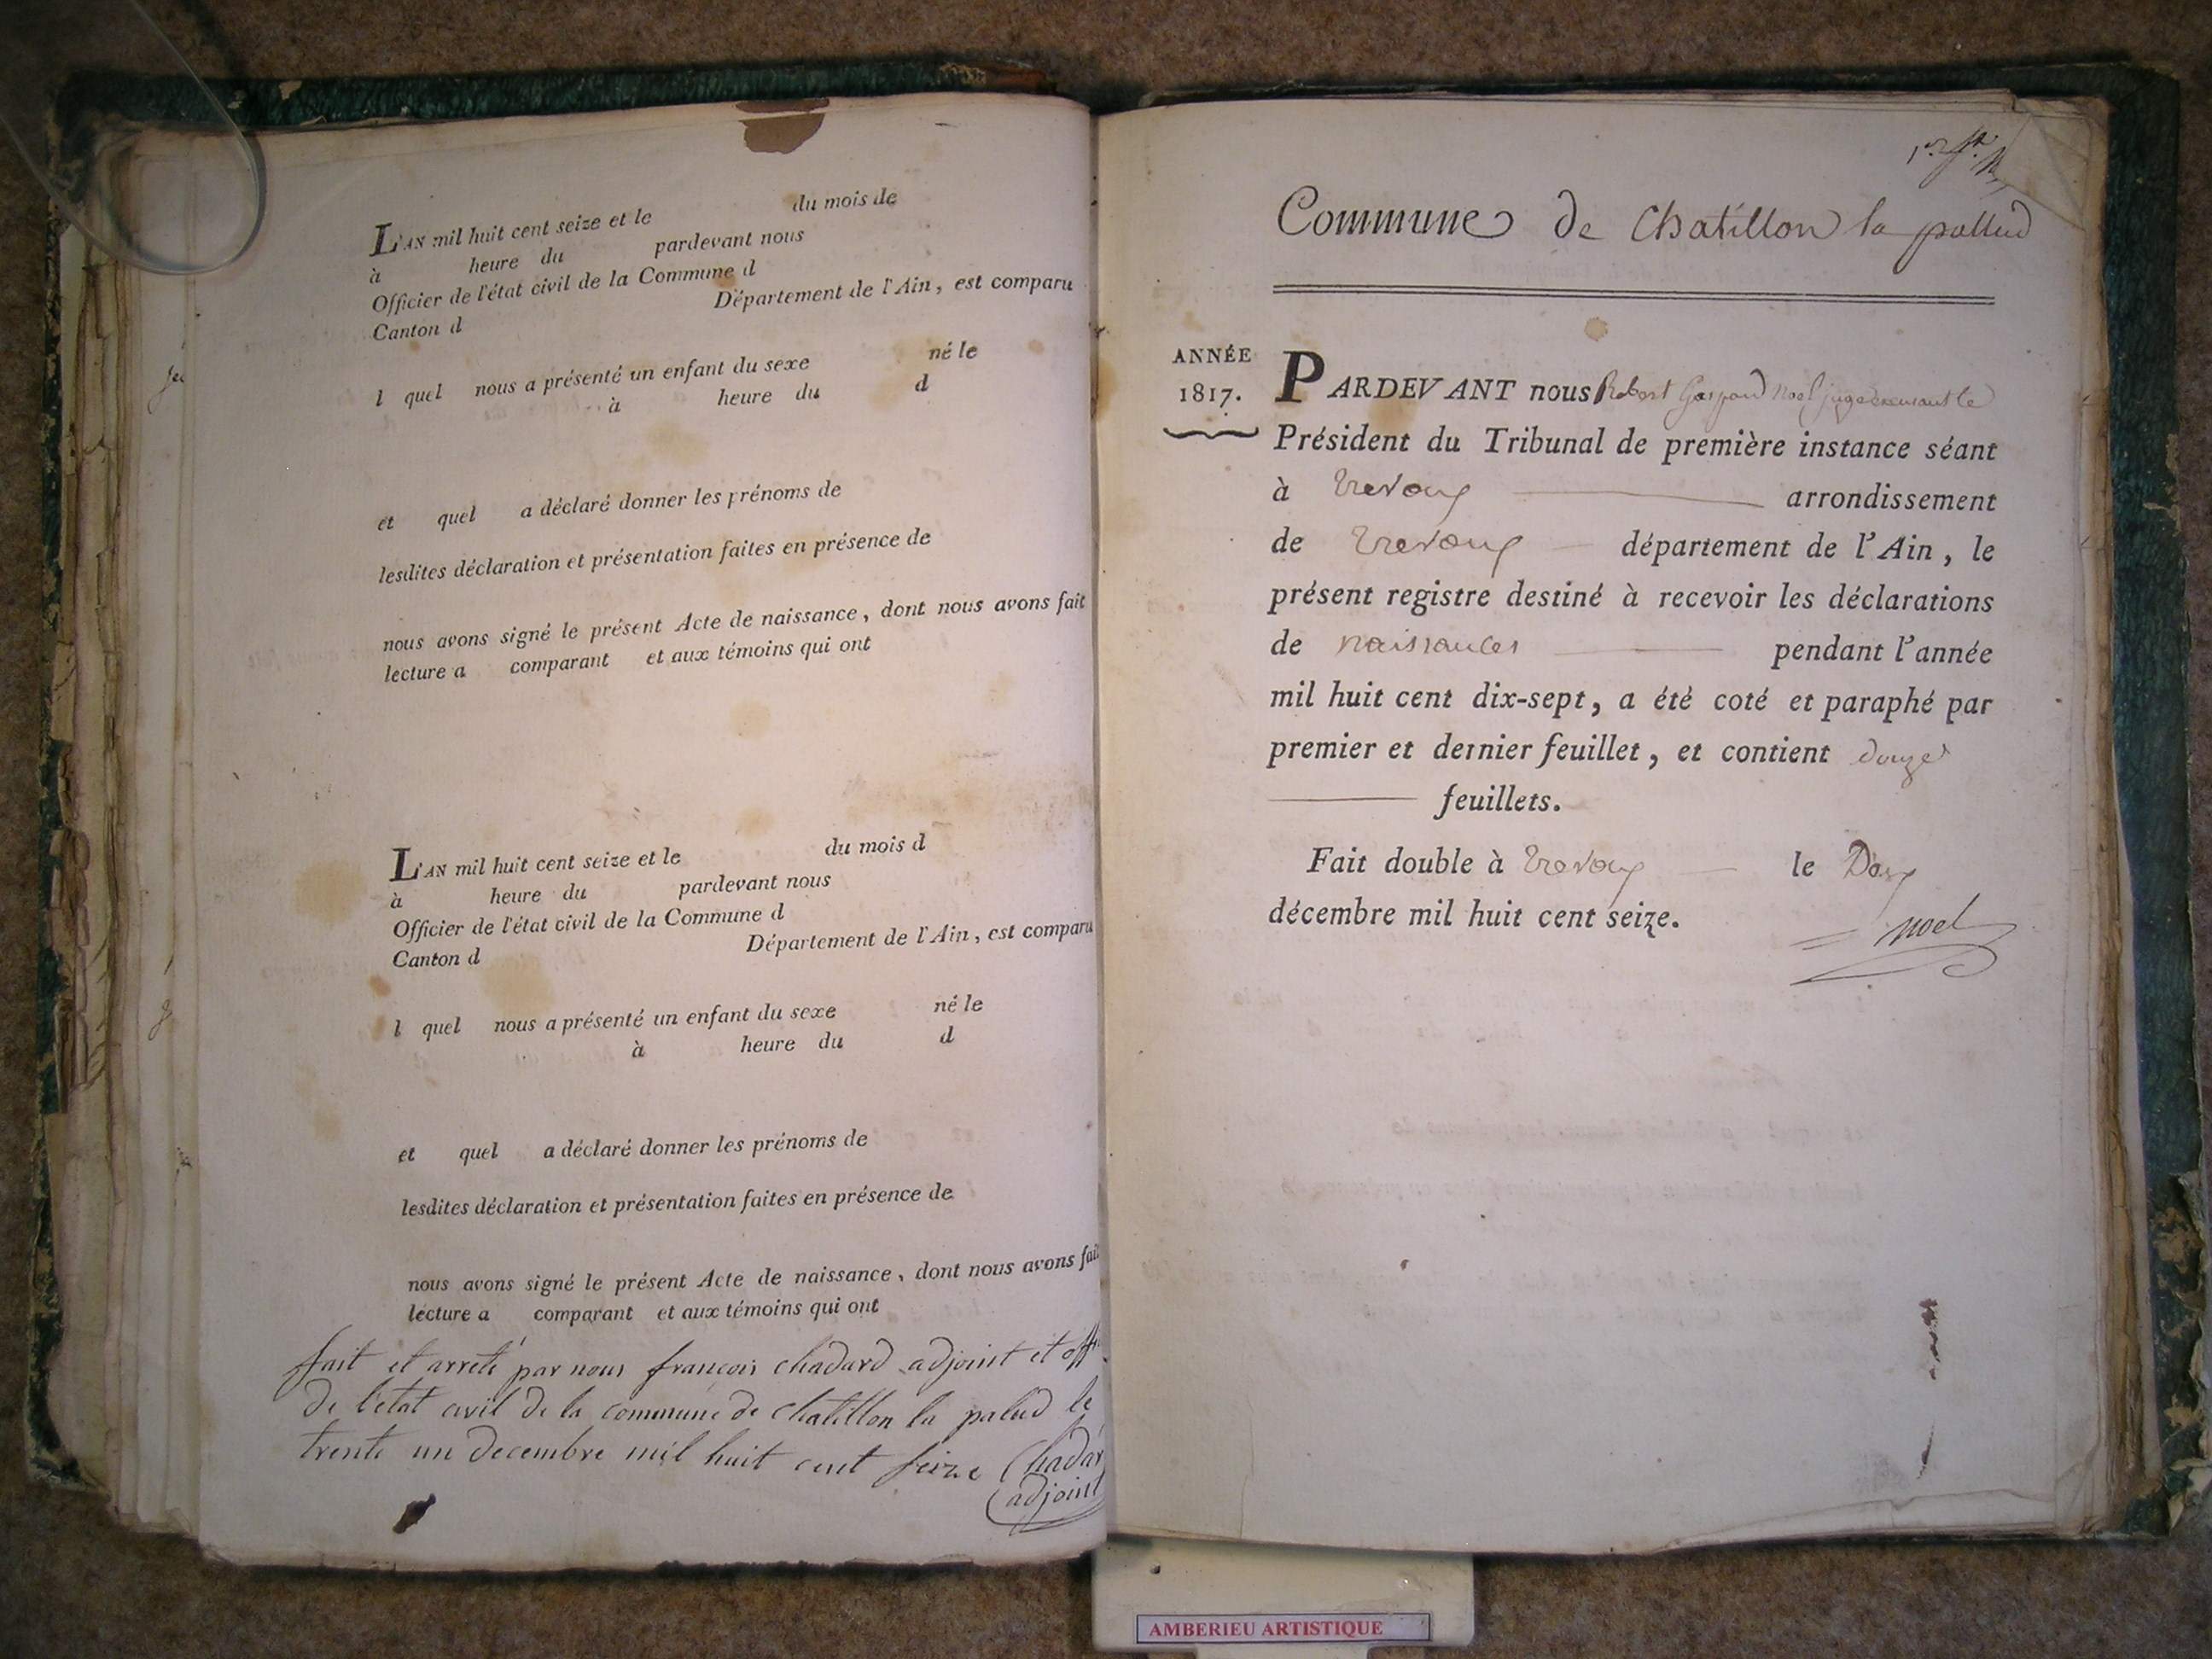 L'AN mil huit cent seize et le du mois de
à heure du pardevant nous
Officier de l'état civil de la Commune d
Canton d Département de l'Ain, est comparu
l quel nous a présenté un enfant du sexe né le
à heure du d
et quel a déclaré donner les prénoms de
lesdites déclaration et présentation faites en présence de
nous avons signé le présent Acte de naissance, dont nous avons fait
lecture a comparant et aux témoins qui ont
L'AN mil huit cent seize et le du mois d
à heure du pardevant nous
Officier de l'état civil de la Commune d
Canton d Département de l'Ain, est comparu
l quel nous a présenté un enfant du sexe né le
à heure du d
et quel a déclaré donner les prénoms de
lesdites déclaration et présentation faites en présence de
nous avons signé le présent Acte de naissance, dont nous avons fait
lecture a comparant et aux témoins qui ont
fait et arreté par nous françois chadard adjoint et off
De l'etat civil De la commune de chatillon la palud le
trente un decembre mil huit cent seize Chadar
adjoint
Commune de Chatillon la pallud
ANNÉE
1817.
PARDEVANT nous Robert Gaspard Noel juge
Président du Tribunal de première instance séant
à Trevoux arrondissement
de Trevoux département de l'Ain, le
présent registre destiné à recevoir les déclarations
de naissances pendant l'année
mil huit cent dix-sept, a été coté et paraphé par
premier et dernier feuillet, et contient douze
feuillets.
Fait double à Trevoux le Dix
décembre mil huit cent seize.
Noel
AMBERIEU ARTISTIQUE